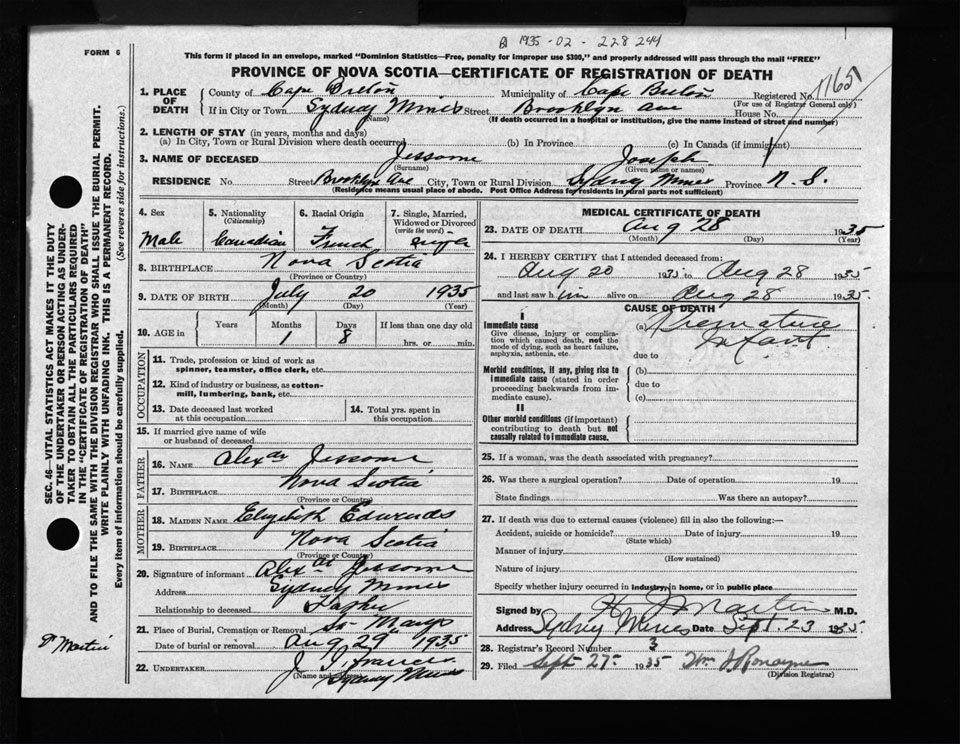 1935-02-228244
FORM 6
This form if placed in an envelope, marked "Dominion Statistics—Free, penalty for improper use $300," and properly addressed will pass through the mail "FREE"
PROVINCE OF NOVA SCOTIA—CERTIFICATE OF REGISTRATION OF DEATH
1. PLACE OF DEATH
County of Cape Breton Municipality of Cape Breton Registered No. 1165
(For use of Registrar General only)
If in City or Town Sydney Mines Street Brooklyn Ave House No.
(Name) (If death occurred in a hospital or institution, give the name instead of street and number)
2. LENGTH OF STAY (in years, months and days)
(a) In City, Town or Rural Division where death occurred (b) In Province (c) In Canada (if immigrant)
3. NAME OF DECEASED Jessome Joseph
(Surname) (Given name or names)
RESIDENCE No. Street Brooklyn Ave City, Town or Rural Division Sydney Mines Province N. S.
(Residence means usual place of abode. Post Office Address for residents in rural parts not sufficient)
4. Sex
Male
5. Nationality
(Citizenship)
Canadian
6. Racial Origin
French
7. Single, Married,
Widowed or Divorced
(write the word)
single
8. BIRTHPLACE Nova Scotia
(Province or Country)
9. DATE OF BIRTH July 20 1935
(Month) (Day) (Year)
10. AGE in
Years Months Days If less than one day old
1 8 hrs. or min.
OCCUPATION
11. Trade, profession or kind of work as
spinner, teamster, office clerk, etc.
12. Kind of industry or business, as cotton-
mill, lumbering, bank, etc.
13. Date deceased last worked
at this occupation
14. Total yrs. spent in
this occupation
15. If married give name of wife
or husband of deceased
FATHER
16. NAME Alex Jessome
17. BIRTHPLACE Nova Scotia
(Province or Country)
MOTHER
18. MAIDEN NAME Elizabeth Edwards
19. BIRTHPLACE Nova Scotia
(Province or Country)
20. Signature of informant Alex Jessome
Address Sydney Mines
Relationship to deceased Father
21. Place of Burial, Cremation or Removal St Marys
Date of burial or removal Aug 29 1935
22. UNDERTAKER J. J. Francis
(Name and address) Sydney Mines
MEDICAL CERTIFICATE OF DEATH
23. DATE OF DEATH Aug 28 1935
(Month) (Day) (Year)
24. I HEREBY CERTIFY that I attended deceased from:
Aug 20 1935 to Aug 28 1935
and last saw him alive on Aug 28 1935.
CAUSE OF DEATH
I
Immediate cause
Give disease, injury or complica-
tion which caused death, not the
mode of dying, such as heart failure,
asphyxia, asthenia, etc.
(a) Premature
Infant
due to
Morbid conditions, if any, giving rise to
immediate cause (stated in order
proceeding backwards from im-
mediate cause).
(b)
due to
(c)
II
Other morbid conditions (if important)
contributing to death but not
causally related to immediate cause.
25. If a woman, was the death associated with pregnancy?
26. Was there a surgical operation? Date of operation 19
State findings Was there an autopsy?
27. If death was due to external causes (violence) fill in also the following:—
Accident, suicide or homicide? Date of injury 19
(State which)
Manner of injury
(How sustained)
Nature of injury
Specify whether injury occurred in industry, in home, or in public place
Signed by Martin M.D.
Address Sydney Mines Date Sept. 23 1935.
28. Registrar's Record Number 3
29. Filed Sept 27 1935 Wm J Ronayne
(Division Registrar)
SEC. 46—VITAL STATISTICS ACT MAKES IT THE DUTY
OF THE UNDERTAKER OR PERSON ACTING AS UNDER-
TAKER TO OBTAIN ALL THE PARTICULARS REQUIRED
IN THE "CERTIFICATE OF REGISTRATION OF DEATH"
AND TO FILE THE SAME WITH THE DIVISION REGISTRAR WHO SHALL ISSUE THE BURIAL PERMIT.
WRITE PLAINLY WITH UNFADING INK. THIS IS A PERMANENT RECORD.
Every item of information should be carefully supplied. (See reverse side for instructions.)
Dr Martin